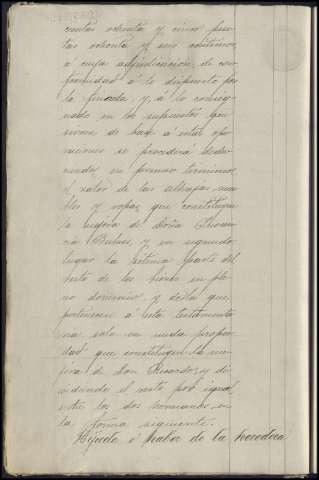 cientas ochenta y cinco pese-
tas setenta y seis céntimos
á cuya adjudicación, de con-
formidad á lo dispuesto por
la finada, y, á lo consig-
nado en los supuestos que
sirven de base á estas ope-
raciones se procederá dedu-
ciendo, en primer término,
el valor de las alhajas mue-
bles y ropas, que constituyen
la mejora de Doña
y en segundo
lugar la sétima parte del
resto de los bienes en ple-
no dominio, y de la que
pertenecen á esta testamenta-
ría solo en nuda propie-
dad que constituyen la me-
jora de Don Ricardo; y di-
vidiendo el resto por igual
entre los dos hermanos, en
la forma siguiente.
Hijuela ó haber de la heredera